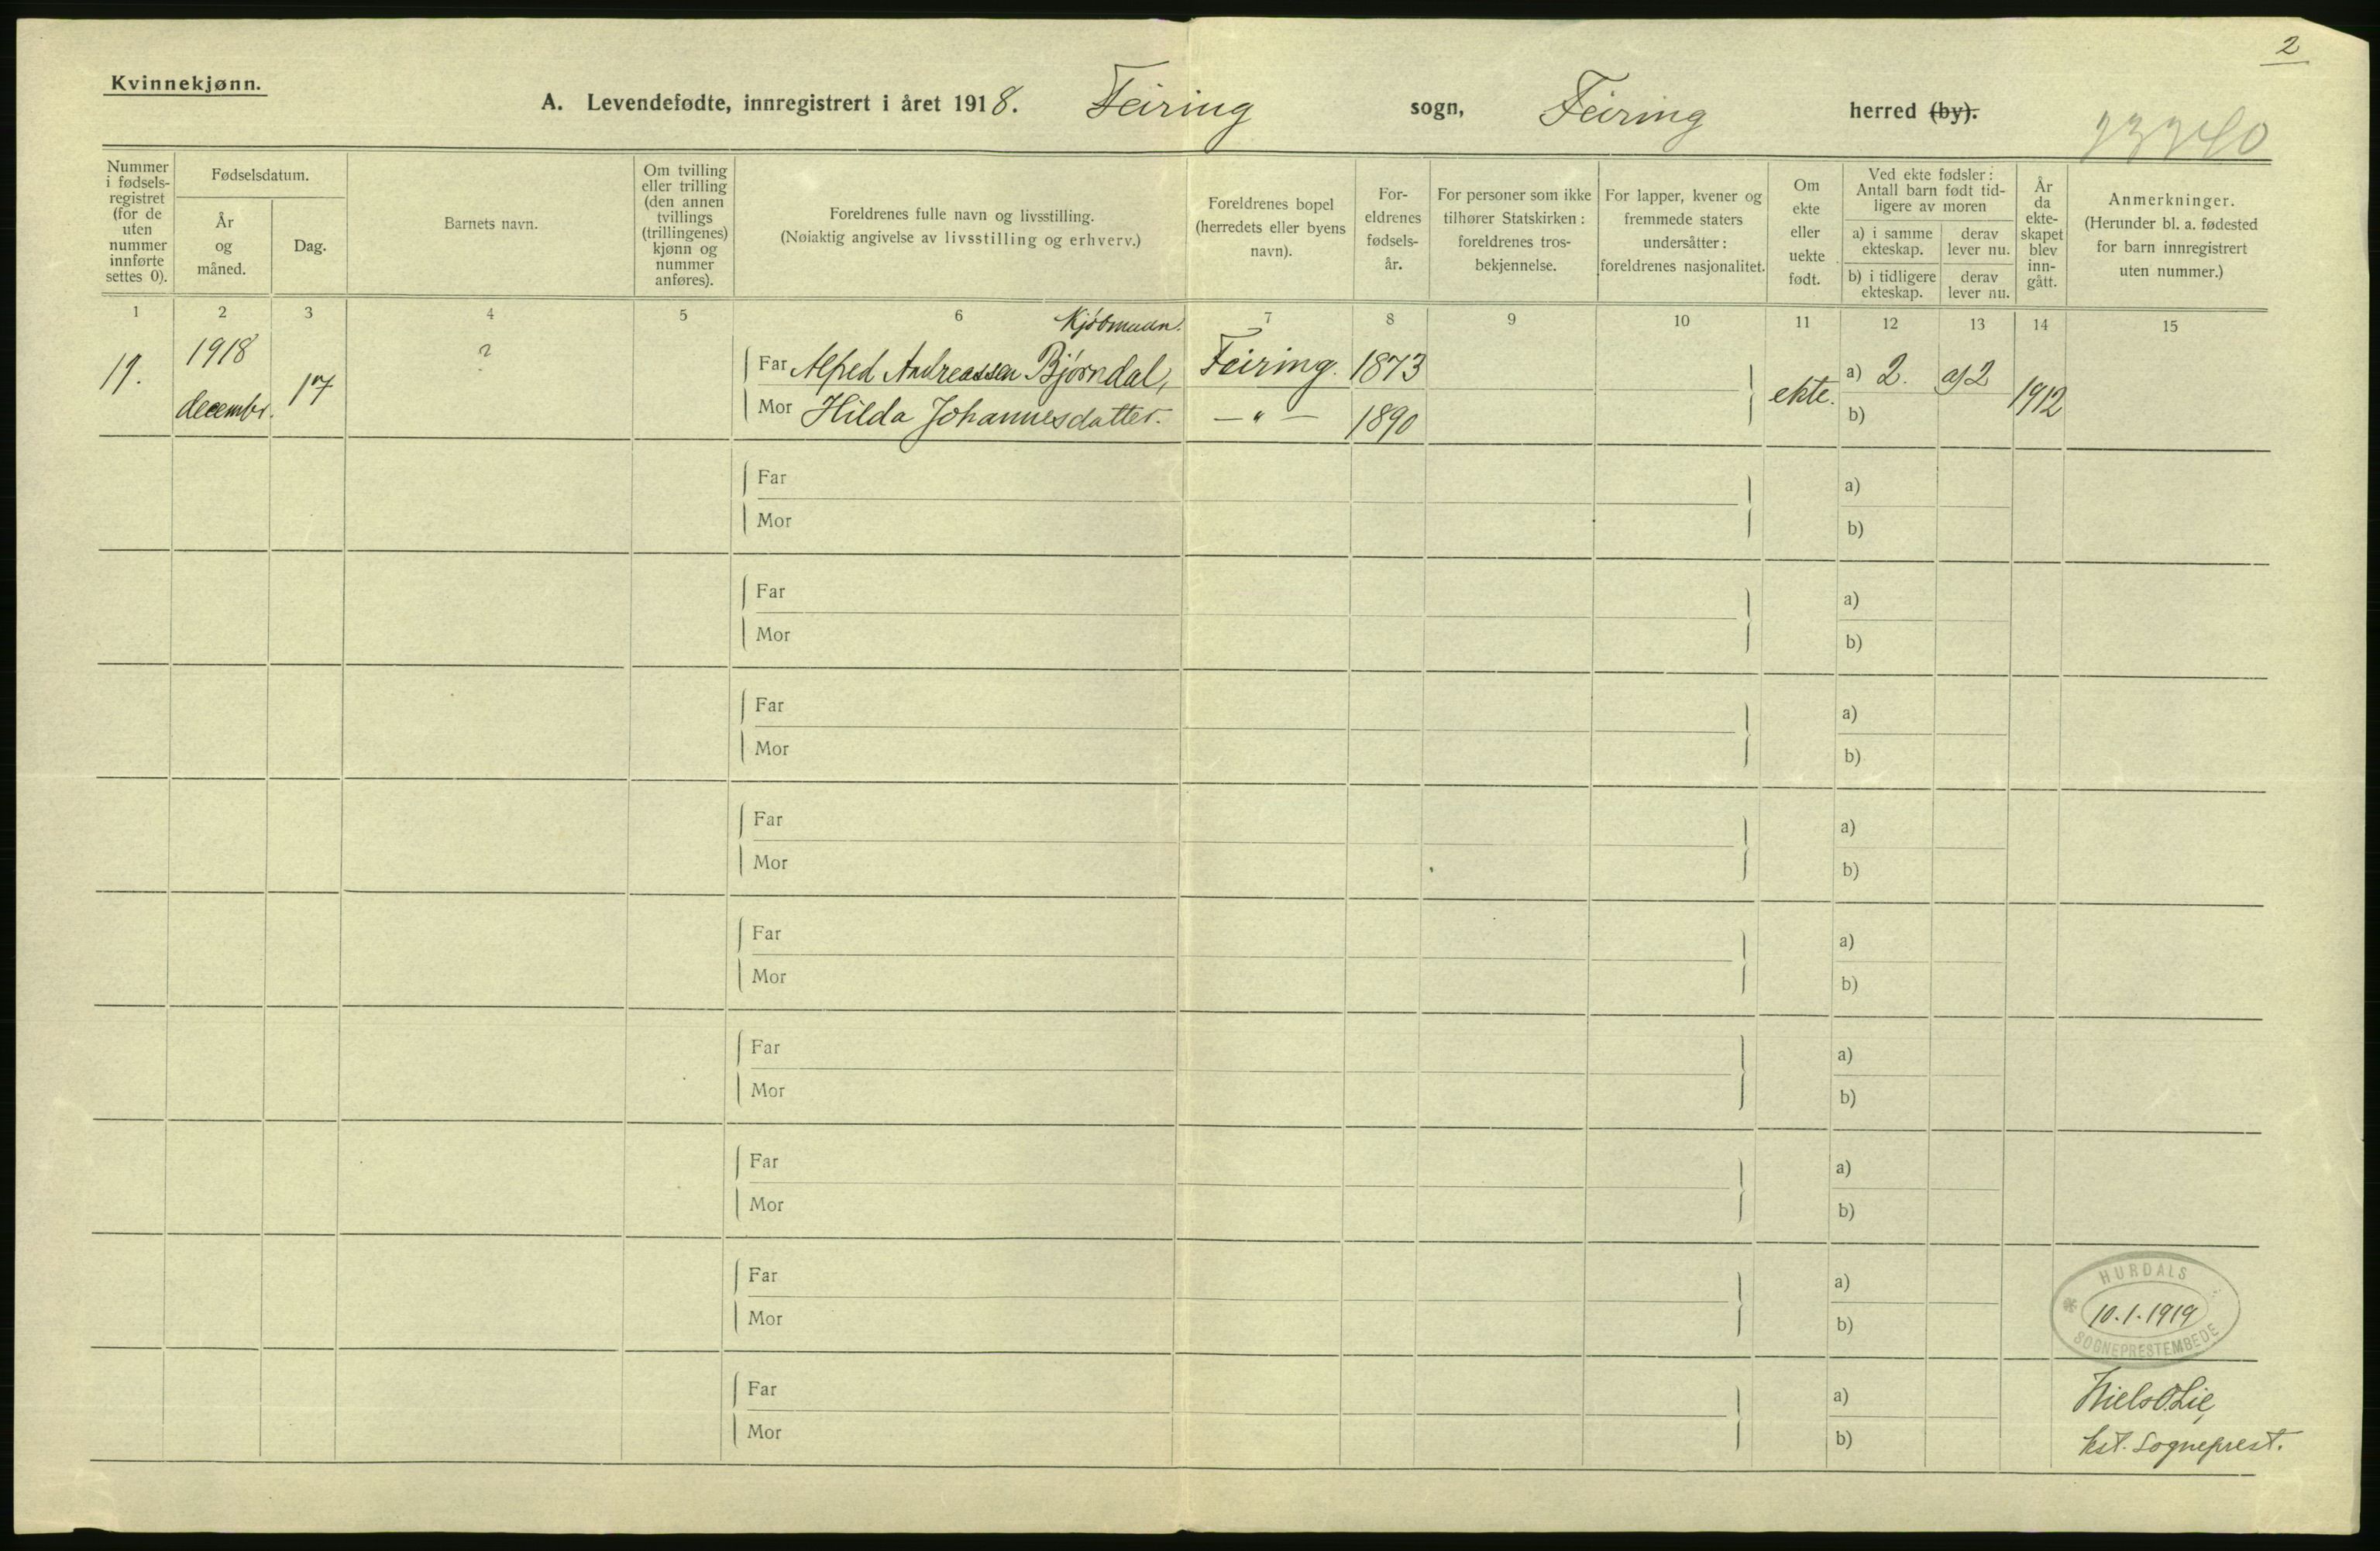 2
Kvinnekjønn.
A. Levendefødte, innregistrert i året 1918. Feiring sogn, Feiring herred (by).
Nummer i fødsels-registret (for de uten nummer innførte settes 0).
Fødselsdatum.
År og måned.
Dag.
Barnets navn.
Om tvilling eller trilling (den annen tvillings (trillingenes) kjønn og nummer anføres).
Foreldrenes fulle navn og livsstilling.
(Nøiaktig angivelse av livsstilling og erhverv.)
Foreldrenes bopel (herredets eller byens navn).
For-eldrenes fødsels-år.
For personer som ikke tilhører Statskirken: foreldrenes tros-bekjennelse.
For lapper, kvener og fremmede staters undersåtter: foreldrenes nasjonalitet.
Om ekte eller uekte født.
Ved ekte fødsler: Antall barn født tid-ligere av moren
a) i samme ekteskap.
derav lever nu.
b) i tidligere ekteskap.
derav lever nu.
År da ekte-skapet blev inn-gått.
Anmerkninger.
(Herunder bl. a. fødested for barn innregistrert uten nummer.)
1 2 3 4 5 6 7 8 9 10 11 12 13 14 15
Kjøbmann.
1918 ? Far Alfred Andreassen Bjørndal, Feiring. 1873 a) 2. a) 2
17. decembr. 17 Mor Hilda Johannesdatter. —"— 1890 ekte. b) 1912
Far a)
Mor b)
Far a)
Mor b)
Far a)
Mor b)
Far a)
Mor b)
Far a)
Mor b)
Far a)
Mor b)
Far a)
Mor b)
Far a)
Mor b)
Far a)
Mor b)
HURDALS
10.1.1919
SOGNEPRESTEMBEDE
Niels O. Lie,
kst. sogneprest.